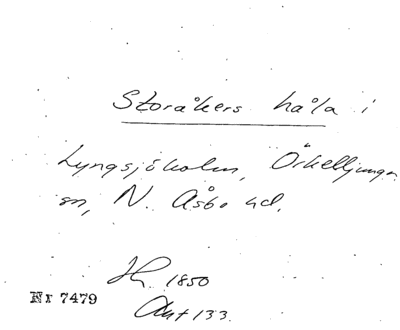 Storåkers håla i
Lyngsjöholm, Örkelljunga
sn, N. Åsbo hd.
Hn 1850
Akt 133.
Nr 7479